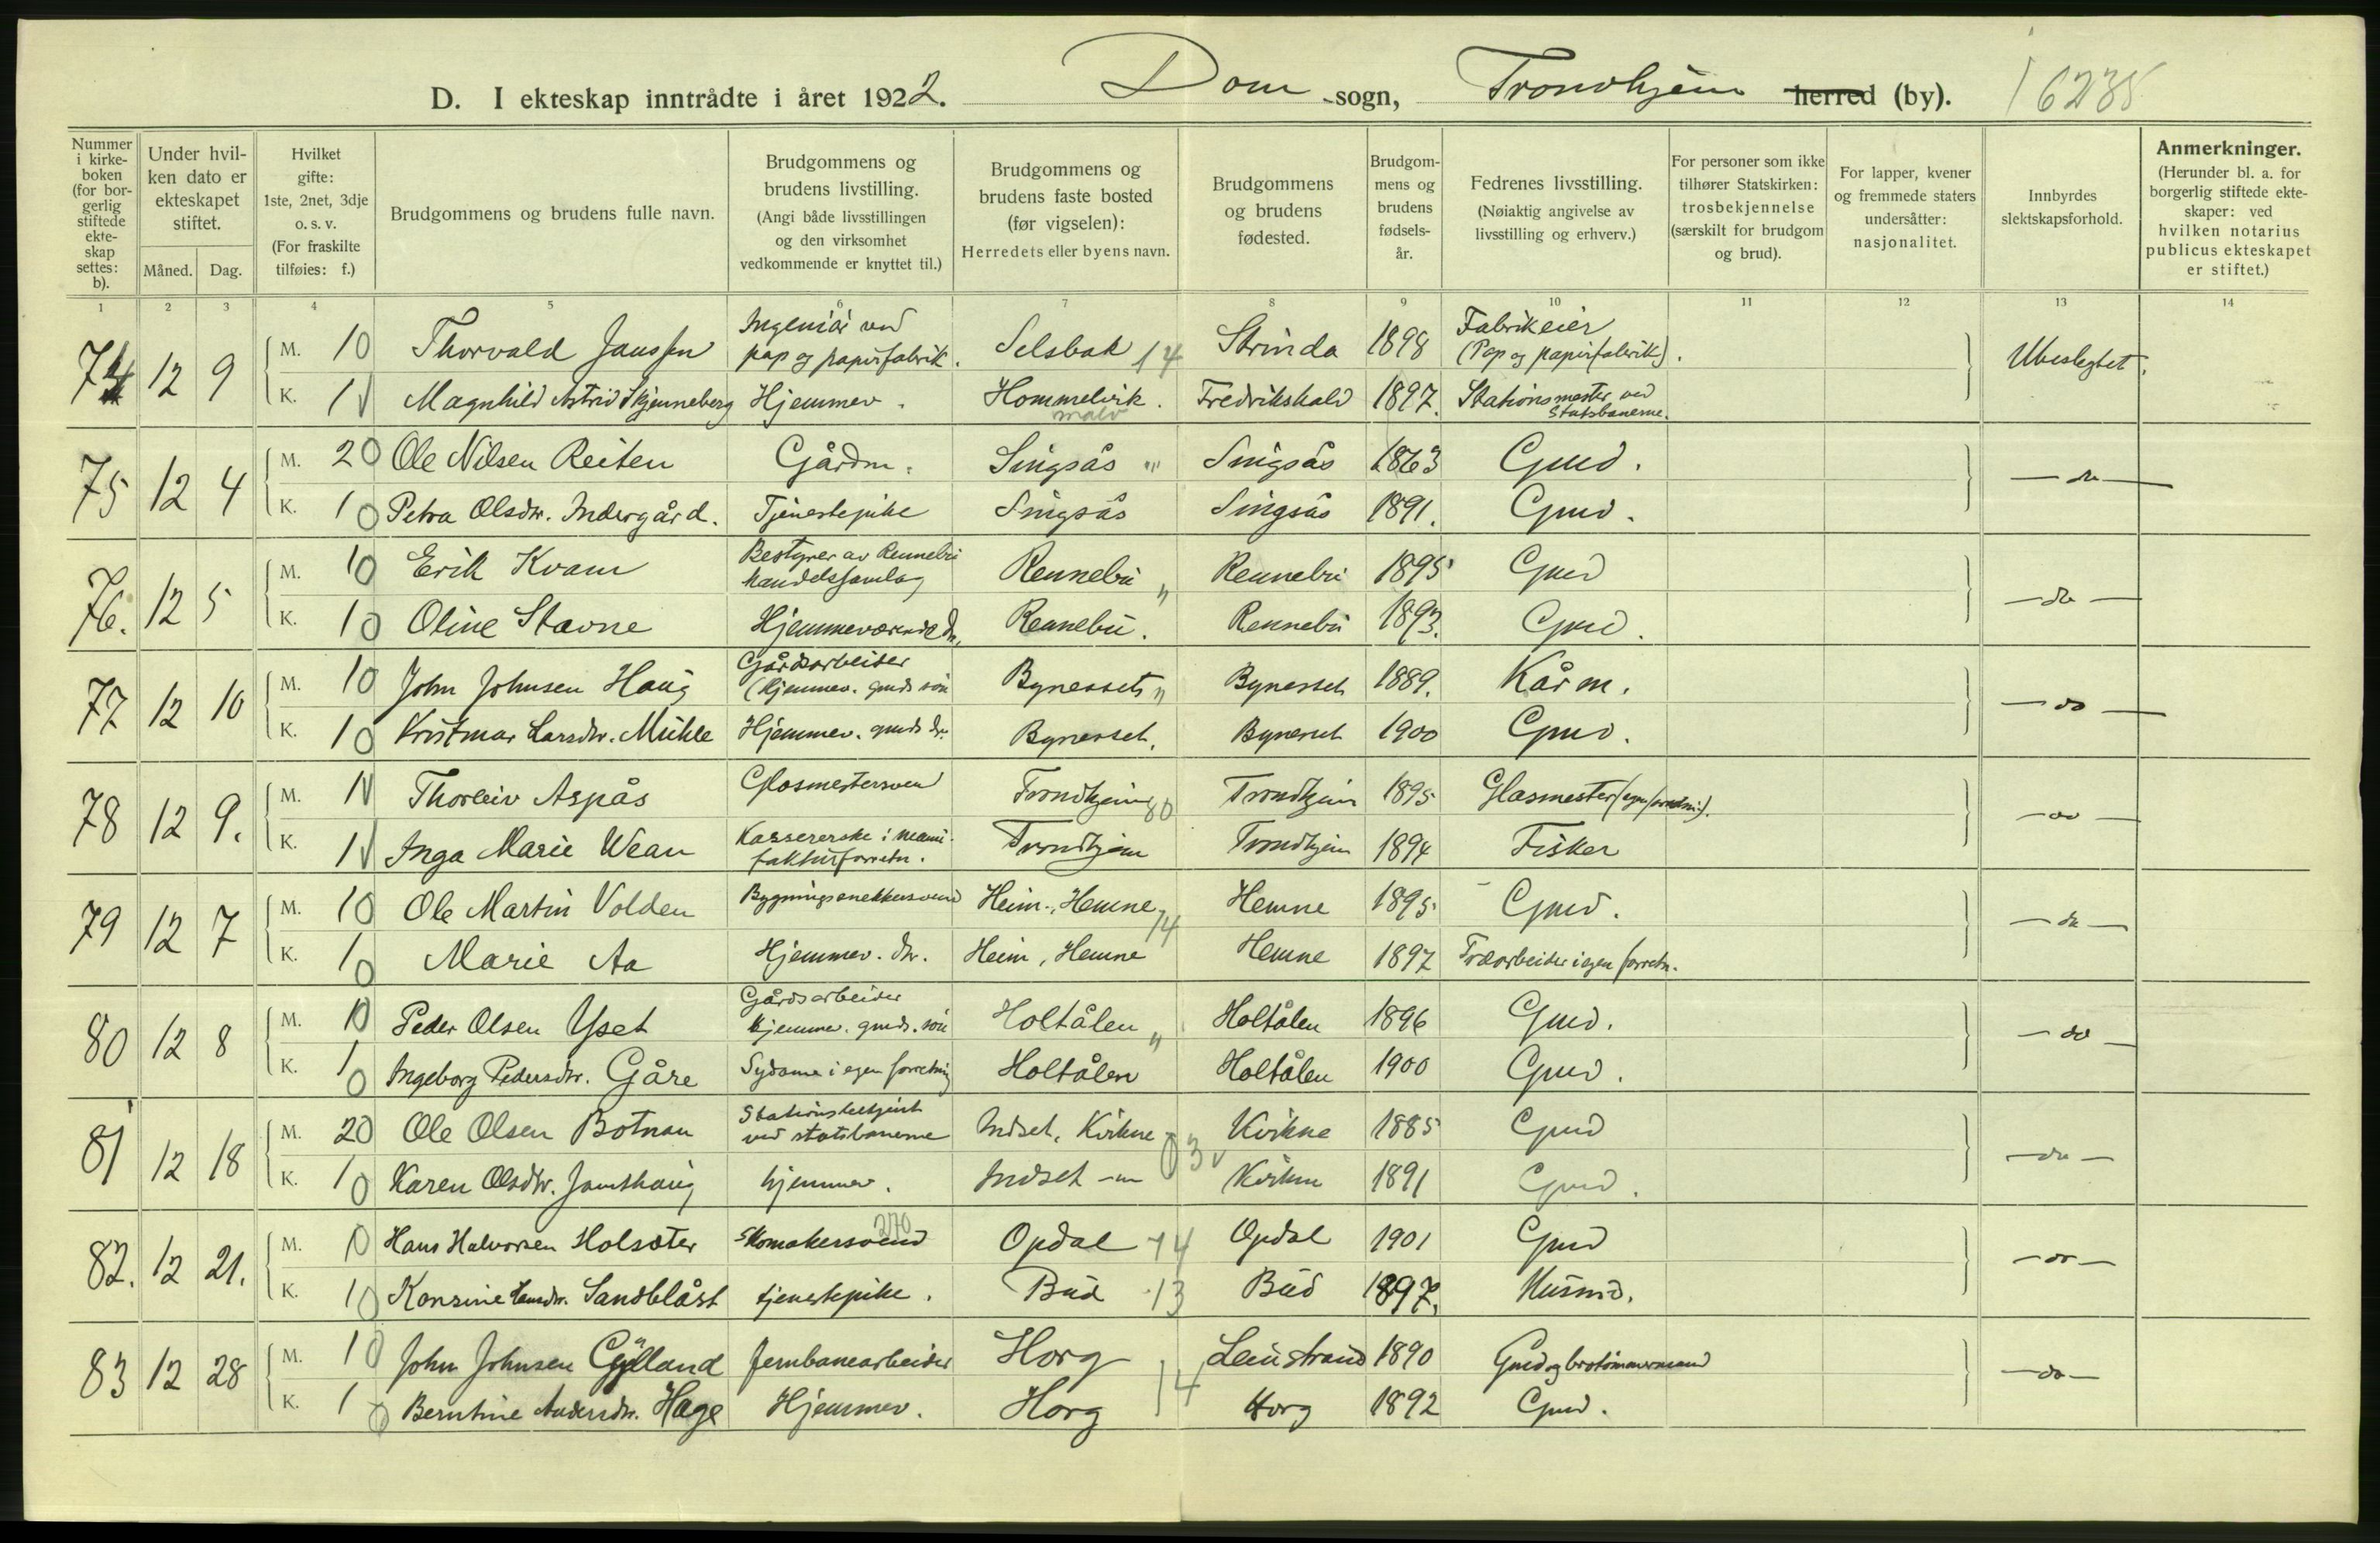 D. I ekteskap inntrådte i året 1922. Dom sogn, Trondhjem herred (by). 16235
Nummer i kirkeboken (for borgerlig stiftede ekteskap settes: b).
Under hvilken dato er ekteskapet stiftet.
Måned. Dag.
Hvilket gifte: 1ste, 2net, 3dje o. s. v. (For fraskilte tilføies: f.)
Brudgommens og brudens fulle navn.
Brudgommens og brudens livstilling. (Angi både livsstillingen og den virksomhet vedkommende er knyttet til.)
Brudgommens og brudens faste bosted (før vigselen): Herredets eller byens navn.
Brudgommens og brudens fødested.
Brudgommens og brudens fødselsår.
Fedrenes livsstilling. (Nøiaktig angivelse av livsstilling og erhverv.)
For personer som ikke tilhører Statskirken: trosbekjennelse (særskilt for brudgom og brud).
For lapper, kvener og fremmede staters undersåtter: nasjonalitet.
Innbyrdes slektskapsforhold.
Anmerkninger. (Herunder bl. a. for borgerlig stiftede ekteskaper: ved hvilken notarius publicus ekteskapet er stiftet.)
1 2 3 4 5 6 7 8 9 10 11 12 13 14
74 12 9 M. 10 Thorvald Janssen Ingeniør ved pap og papirfabrik. Selsbak 14 Strinda 1898 Fabrikeier (Pap og papirfabrik). Ubeslegtet.
K. 1 Magnhild Astrid Skjenneberg Hjemmev. Hommelvik. malv Fredrikshald 1897. Stationsmester ved Statsbanerne.
75 12 4 M. 20 Ole Nilsen Reiten Gårdm. Singsås " Singsås 1863 Gmd. — do —
K. 10 Petra Olsdtr. Indergård. Tjenestepike Singsås Singsås 1891. Gmd.
76. 12 5 M. 10 Erik Kvam Bestyrer av Rennebu handelssamlag Rennebu " Rennebu 1895 Gmd — do —
K. 10 Oline Stavne Hjemmeværende dtr. Rennebu. Rennebu 1893. Gmd.
77 12 10 M. 10 John Johnsen Haug Gårdsarbeider (hjemmev. gmds søn Bynesset " Bynesset 1889. Kårm. — do —
K. 10 Kristmar Larsdtr. Mühle Hjemmev. gmds dtr. Bynesset. Bynesset 1900 Gmd.
78 12 9. M. 1 Thorleiv Aspås Glasmestersvend Trondhjem 80 Trondhjem 1895 Glasmester (egen forretni). — do —
K. 1 Inga Marie Wean Kassererske i manufakturforretn. Trondhjem Trondhjem 1894 Fisker
79 12 7 M. 10 Ole Martin Volden Bygningssnekkersvend Heim, Hemne 14 Hemne 1895 Gmd. — do —
K. 10 Marie Aa Hjemmev. dtr. Heim, Hemne Hemne 1897 Træarbeider i egen forretn.
80 12 8 M. 10 Peder Olsen Yset Gårdsarbeider hjemmev. gmds. søn Holtålen " Holtålen 1896 Gmd. — do —
K. 10 Ingeborg Pedersdtr. Gåre Sydame i egen forretning Holtålen Holtålen 1900 Gmd.
81 12 18 M. 20 Ole Olsen Botnan Stationsbetjent ved statsbanerne Indset, Kvikne 03 Kvikne 1885 Gmd — do —
K. 10 Karen Olsdtr. Jamthaug hjemmev. Indset — " Kvikne 1891 Gmd.
82. 12 21. M. 10 Hans Halvorsen Holsæter Skomakersvend 270 Opdal 14 Opdal 1901 Gmd — do —
K. 10 Konsine Sandblåst tjenestepike. Bud 13 Bud 1897. Husmd.
83 12 28 M. 10 John Johnsen Gylland Jernbanearbeider Horg 14 Leinstrand 1890 Gmd og brotømmermand — do —
K. 10 Berntine Andersdtr. Hage Hjemmev. Horg Horg 1892 Gmd.